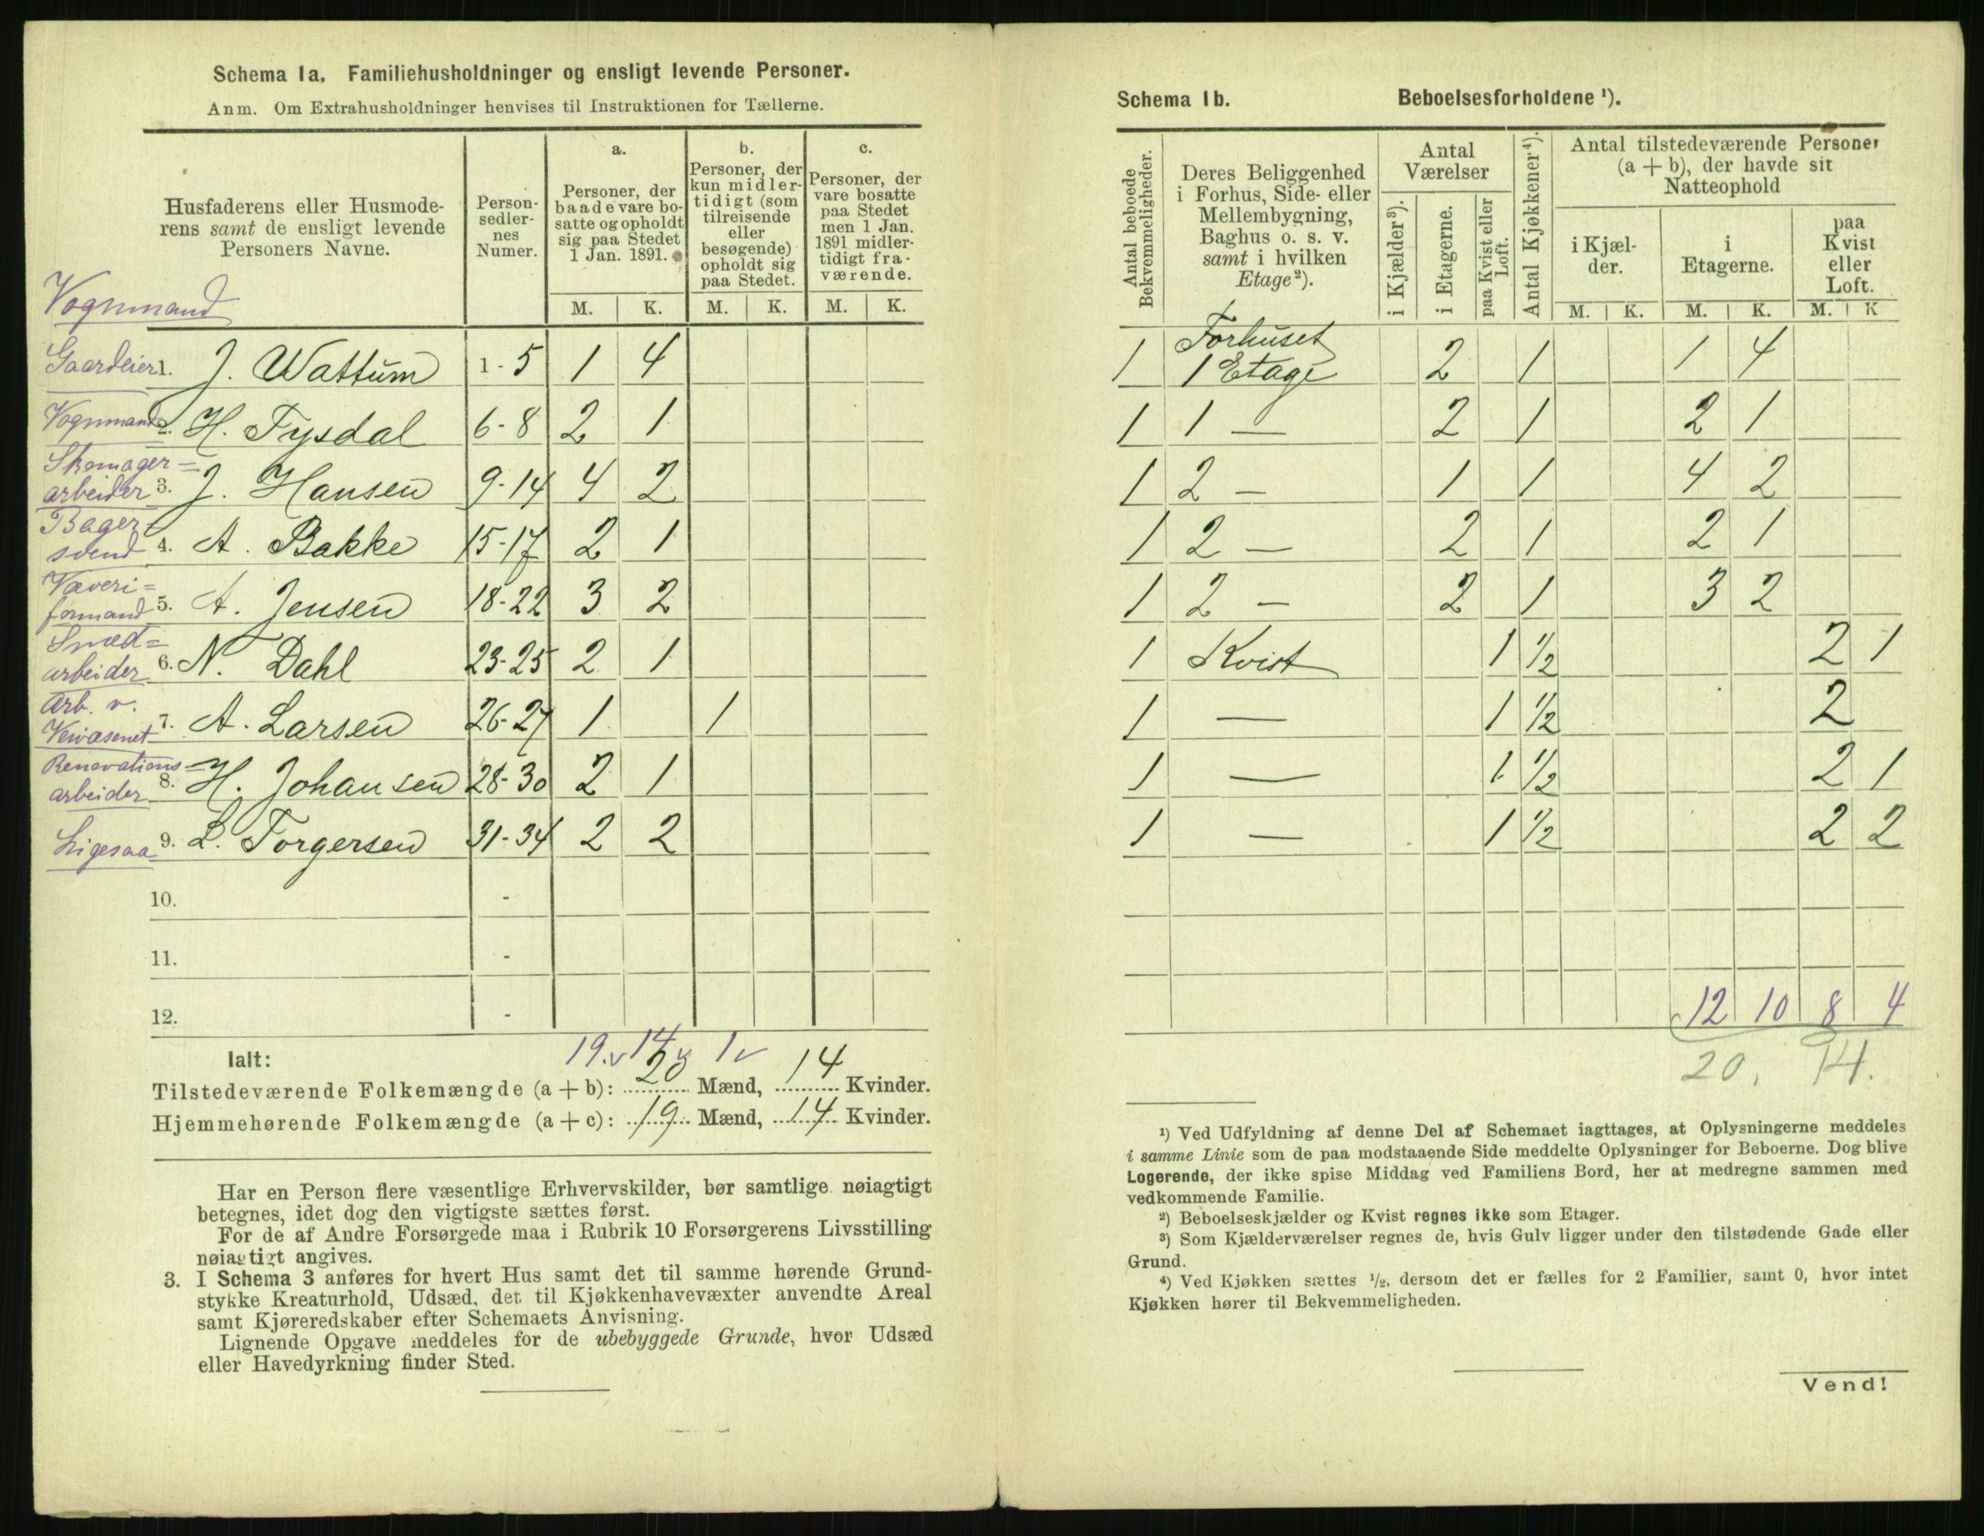 Schema 1a. Familiehusholdninger og ensligt levende Personer.
Anm. Om Extrahusholdninger henvises til Instruktionen for Tællerne.
Husfaderens eller Husmode-
rens samt de ensligt levende
Personers Navne.
Person-
sedler-
nes
Numer.
a.
Personer, der
baade vare bo-
satte og opholdt
sig paa Stedet
1 Jan. 1891.
b.
Personer, der
kun midler-
tidigt (som
tilreisende
eller
besøgende)
opholdt sig
paa Stedet.
c.
Personer, der
vare bosatte
paa Stedet
men 1 Jan.
1891 midler-
tidigt fra-
værende.
M. K. M. K. M. K.
Vognmand
Gaardeier 1. J. Wattum 1-5 1 4
Vognmand 2. H. Tysdal 6-8 2 1
Skomager=
arbeider 3. J. Hansen 9-14 4 2
Bager
svend 4. A. Bakke 15-17 2 1
Væveri=
formand 5. A. Jensen 18-22 3 2
arbeider 6. N. Dahl 23-25 2 1
Arb. v.
Veivæsenet 7. A. Larsen 26-27 1 1
Renovations=
arbeider 8. H. Johansen 28-30 2 1
Ligesaa 9. L. Torgersen 31-34 2 2
10. -
11. -
12. -
19. v 14 v 1 v
Ialt:
Tilstedeværende Folkemængde (a + b): 20 Mænd, 14 Kvinder.
Hjemmehørende Folkemængde (a + c): 19 Mænd, 14 Kvinder.
Har en Person flere væsentlige Erhvervskilder, bør samtlige nøiagtigt
betegnes, idet dog den vigtigste sættes først.
For de af Andre Forsørgede maa i Rubrik 10 Forsørgerens Livsstilling
nøiagtigt angives.
3. I Schema 3 anføres for hvert Hus samt det til samme hørende Grund-
stykke Kreaturhold, Udsæd, det til Kjøkkenhavevæxter anvendte Areal
samt Kjøreredskaber efter Schemaets Anvisning.
Lignende Opgave meddeles for de ubebyggede Grunde, hvor Udsæd
eller Havedyrkning finder Sted.
Schema 1b. Beboelsesforholdene ¹).
Antal beboede
Bekvemmeligheder.
Deres Beliggenhed
i Forhus, Side- eller
Mellembygning,
Baghus o. s. v.
samt i hvilken
Etage²).
Antal
Værelser
i Kjælder³).
i Etagerne.
paa Kvist eller
Loft.
Antal Kjøkkener⁴).
Antal tilstedeværende Personer
(a + b), der havde sit
Natteophold
i Kjæl-
der.
i
Etagerne.
paa
Kvist
eller
Loft.
M. K. M. K. M. K
Forhuset
1 1 Etage 2 1 1 4
1 1 — 2 1 2 1
1 2 — 1 1 4 2
1 2 — 2 1 2 1
1 2 — 2 1 3 2
1 Kvist 1 ½ 2 1
1 — 1 ½ 2
1 — 1 ½ 2 1
1 — 1 ½ 2 2
12 10 8 4
20, 14.
¹) Ved Udfyldning af denne Del af Schemaet iagttages, at Oplysningerne meddeles
i samme Linie som de paa modstaaende Side meddelte Oplysninger for Beboerne. Dog blive
Logerende, der ikke spise Middag ved Familiens Bord, her at medregne sammen med
vedkommende Familie.
²) Beboelseskjælder og Kvist regnes ikke som Etager.
³) Som Kjælderværelser regnes de, hvis Gulv ligger under den tilstødende Gade eller
Grund.
⁴) Ved Kjøkken sættes ½, dersom det er fælles for 2 Familier, samt 0, hvor intet
Kjøkken hører til Bekvemmeligheden.
Vend!